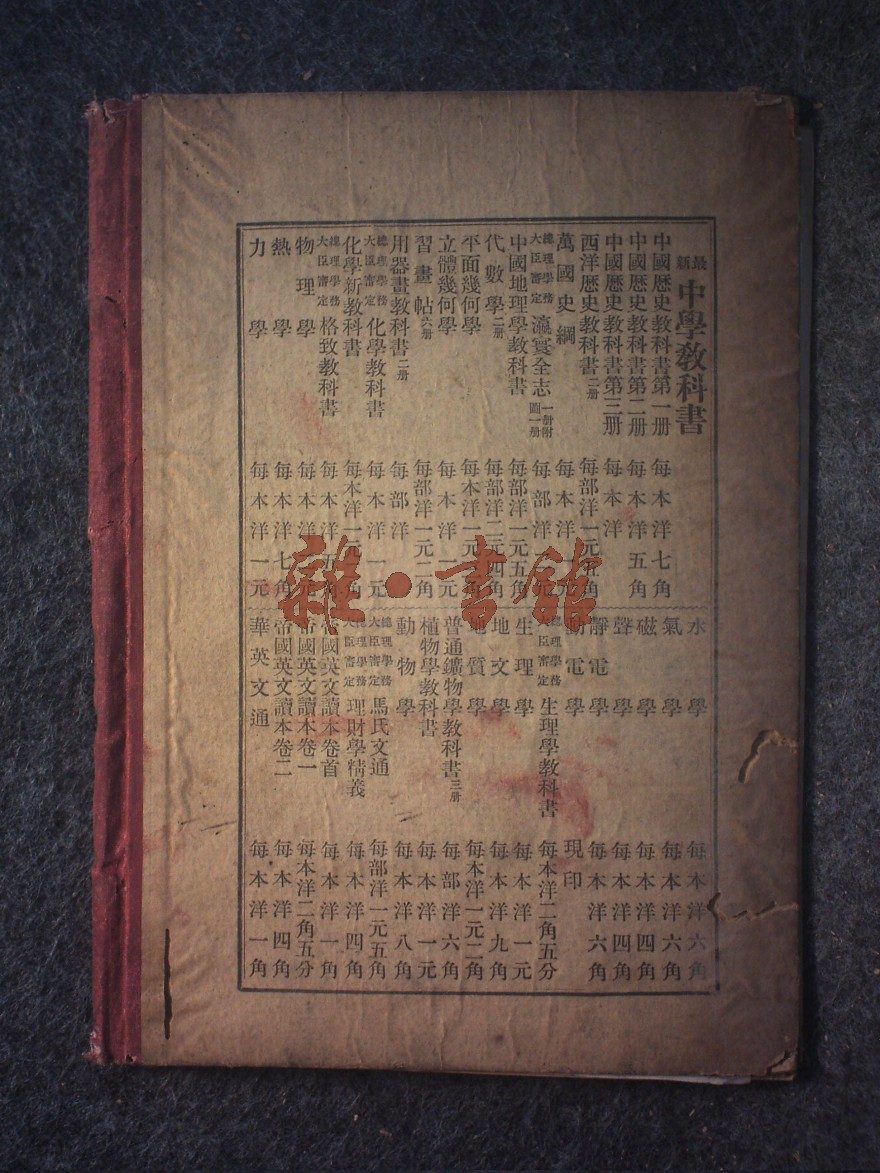 最新中學教科書
中國歷史教科書第一册 每本洋七角
中國歷史教科書第二册 每本洋五角
中國歷史教科書第三册 每本洋
西洋歷史教科書二册 每部洋一元五角
萬國史綱 每本洋元
總理學務大臣審定 瀛寰全志 一册附圖一册 每部洋元
中國地理學教科書 每部洋一元五角
代數學二册 每部洋二元四角
平面幾何學 每本洋一元角
立體幾何學 每本洋一元
習畫帖六册 每部洋一元二角
用器畫教科書二册 每部洋
總理學務大臣審定 化學教科書 每本洋一元
化學新教科書 每本洋一元角
總理學務大臣審定 格致教科書 每本洋五角
物理學 每本洋元
熱學 每本洋七角
力學 每本洋一元
水學 每本洋六角
氣學 每本洋六角
磁學 每本洋四角
聲學 每本洋四角
靜電學 每本洋六角
動電學 現印
總理學務大臣審定 生理學教科書 每本洋二角五分
生理學 每本洋一元
地文學 每本洋九角
地質學 每本洋一元二角
普通鑛物學教科書三册 每部洋六角
植物學教科書 每本洋一元
動物學 每本洋八角
總理學務大臣審定 馬氏文通 每部洋一元五角
總理學務大臣審定 理財學精義 每本洋四角
帝國英文讀本卷首 每本洋一角
帝國英文讀本卷一 每本洋二角五分
帝國英文讀本卷二 每本洋四角
華英文通 每本洋一角
雜·書館